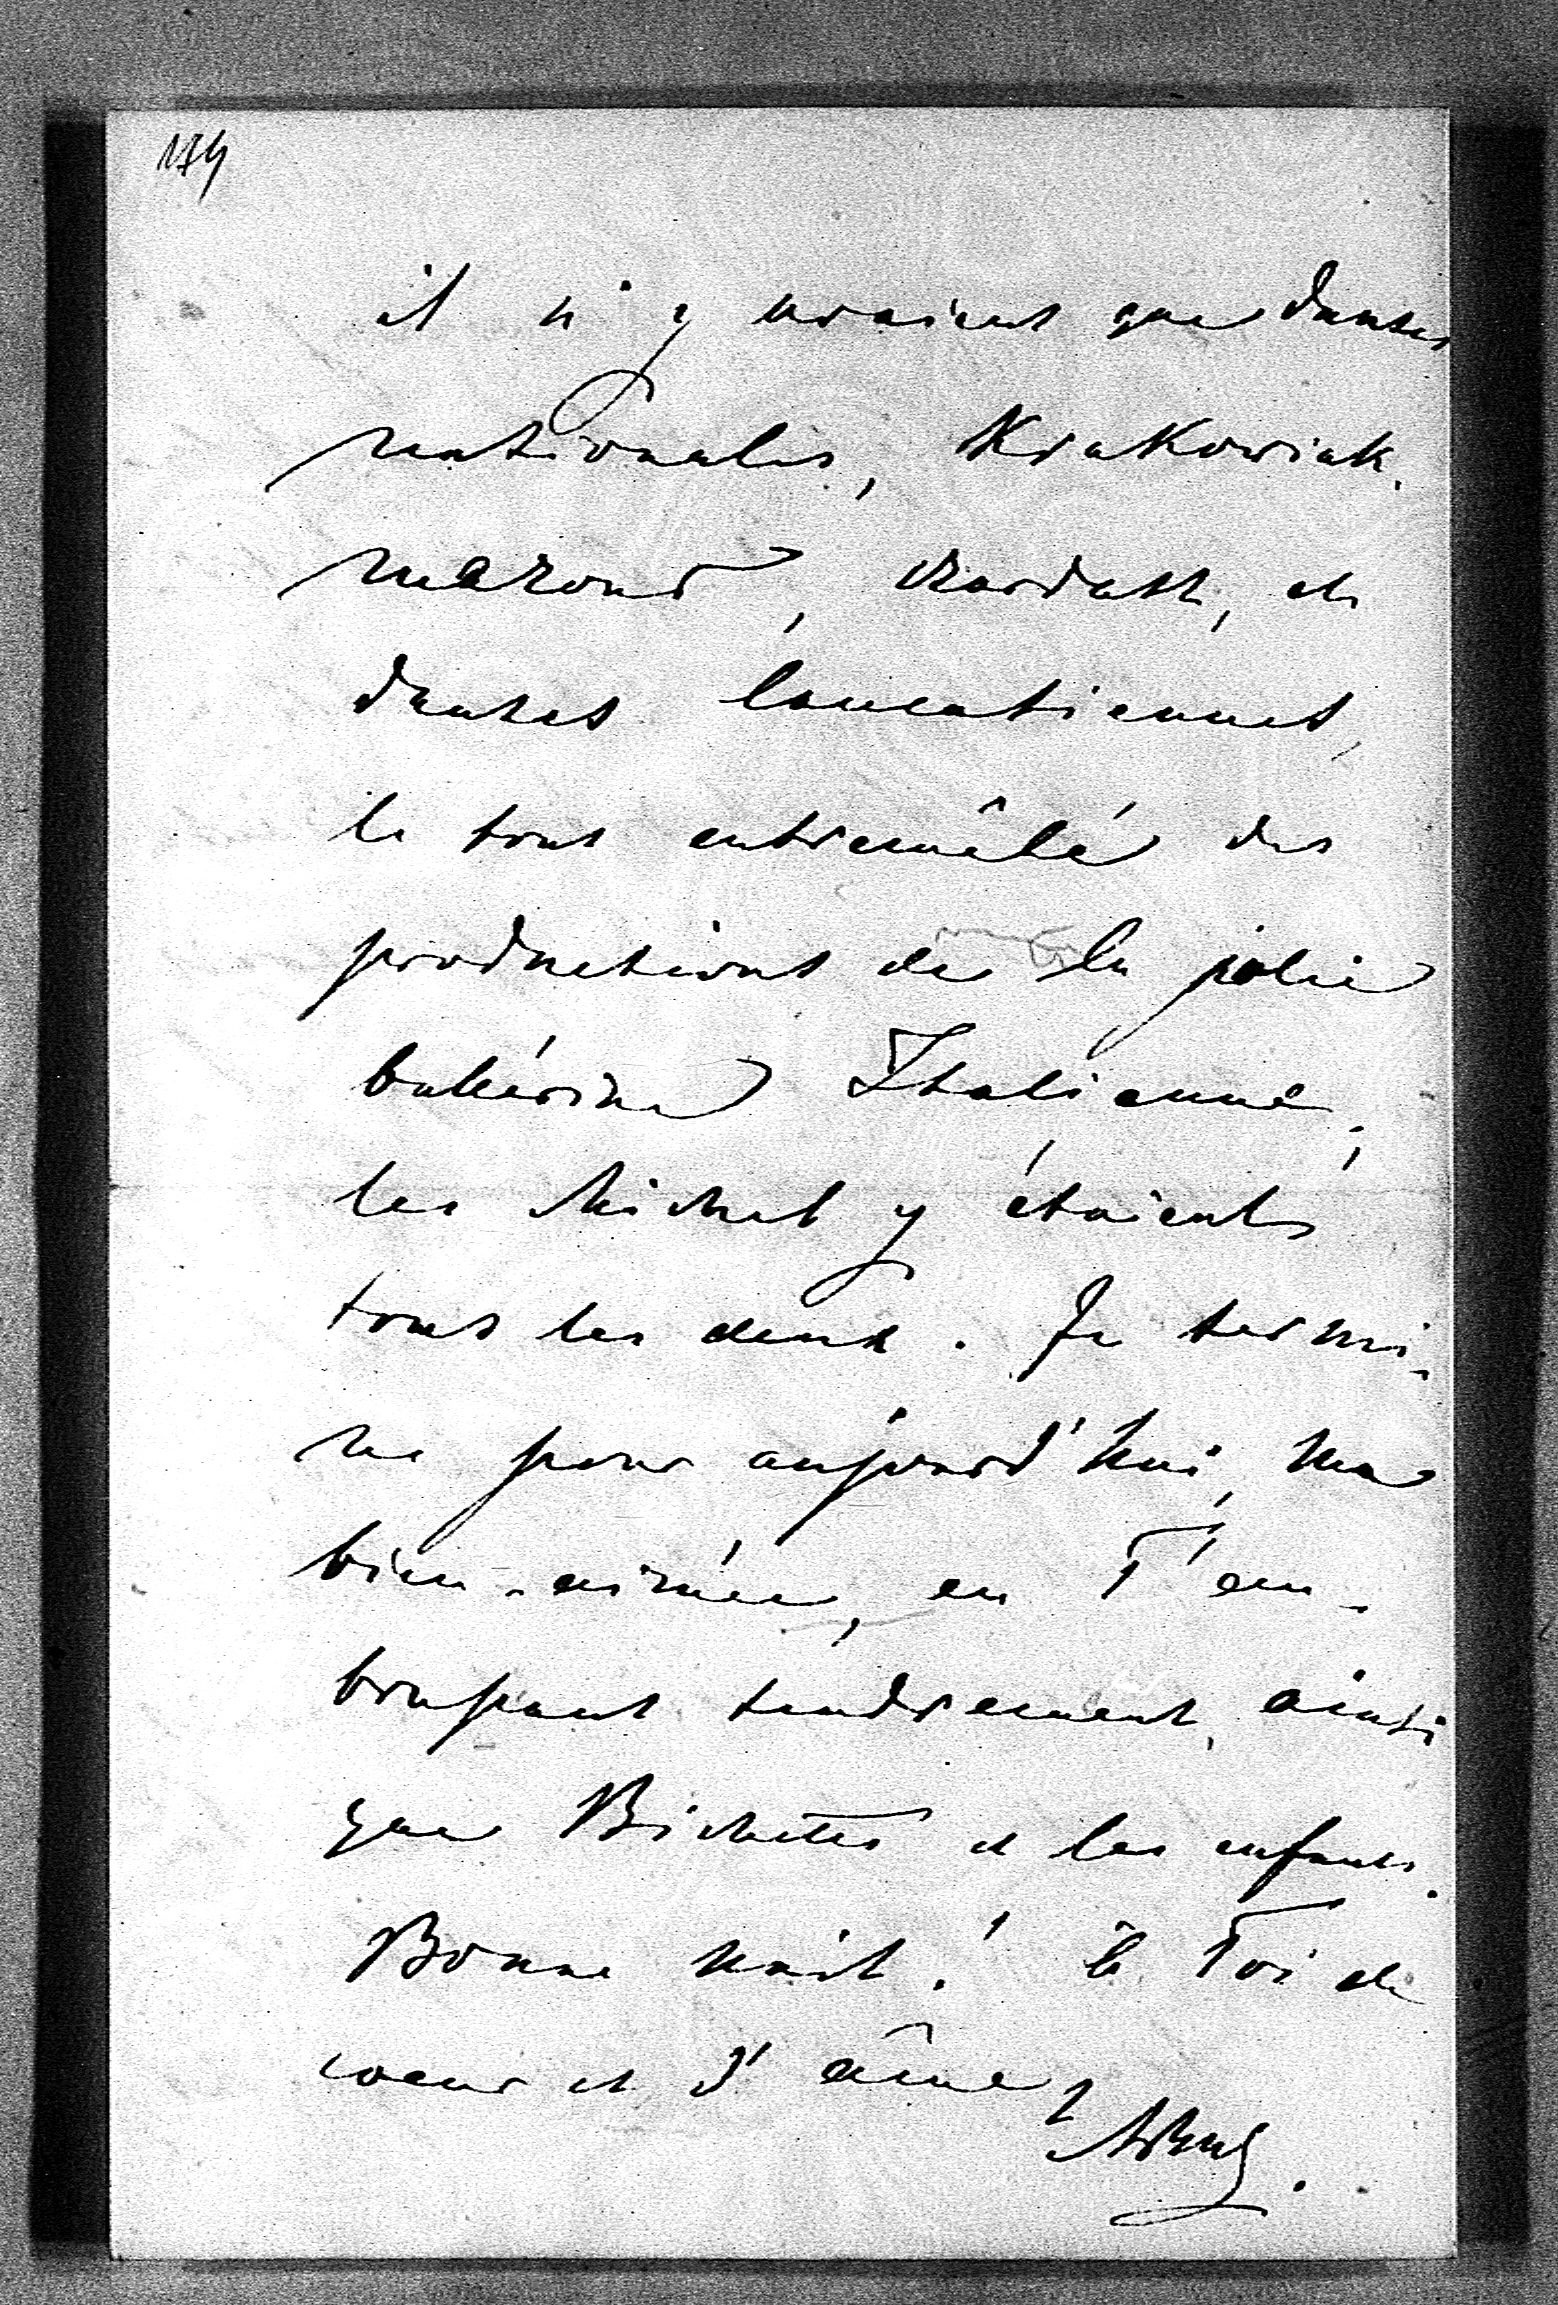 174
il n'y avaient que danses
nationales, Krakowiak,
mazour, czardash, et
danses
le tout entremêlé des
productions de la jolie
ballérina Italienne,
les Michel y étaients
tous les deux. Je termi-
ne pour aujourd'hui, ma
bien-aimée, en T'em-
brassant tendrement, ainsi
que Bichette et les enfants.
Bonne nuit! à Toi de
coeur et d'âme,